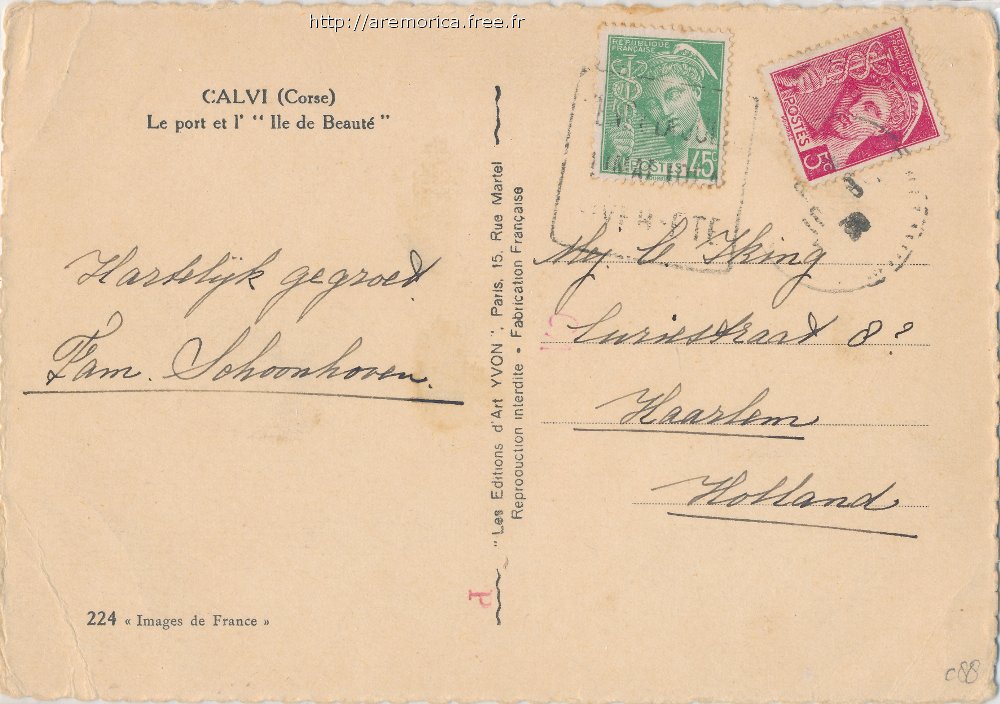 http://aremorica.free.fr
CALVI (Corse)
Le port et l' " Ile de Beauté "
Hartelijk gegroet
Fam. Schoonhoven.
224 « Images de France »
" Les Editions d'Art YVON ", Paris, 15, Rue Martel
Reproduction interdite • Fabrication Française
REPUBLIQUE
FRANÇAISE
POSTES 45c
POSTES 5c
Iking
Curiestraat 8
Haarlem
Holland
c88